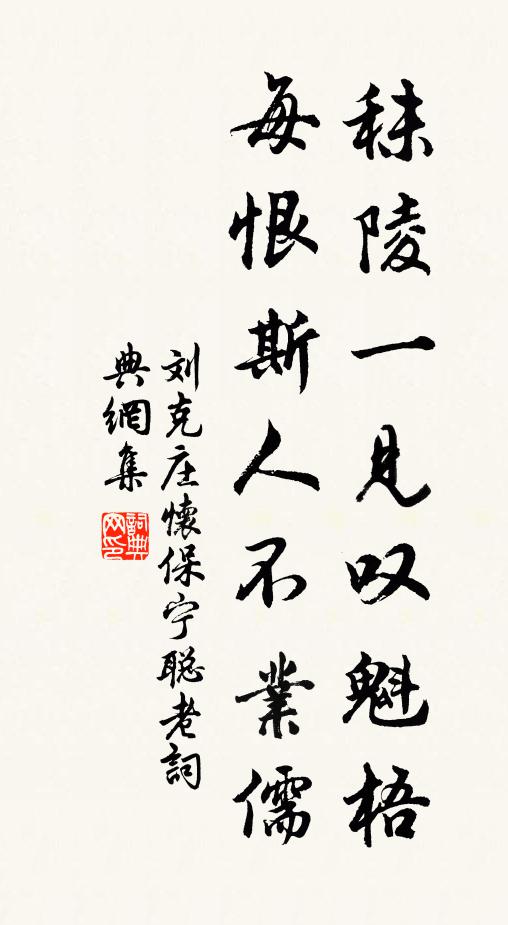 秣陵一見叹魁梧
每恨斯人不業儒
刘克庄懷保宁聪老詞
典網集
詞典
网印